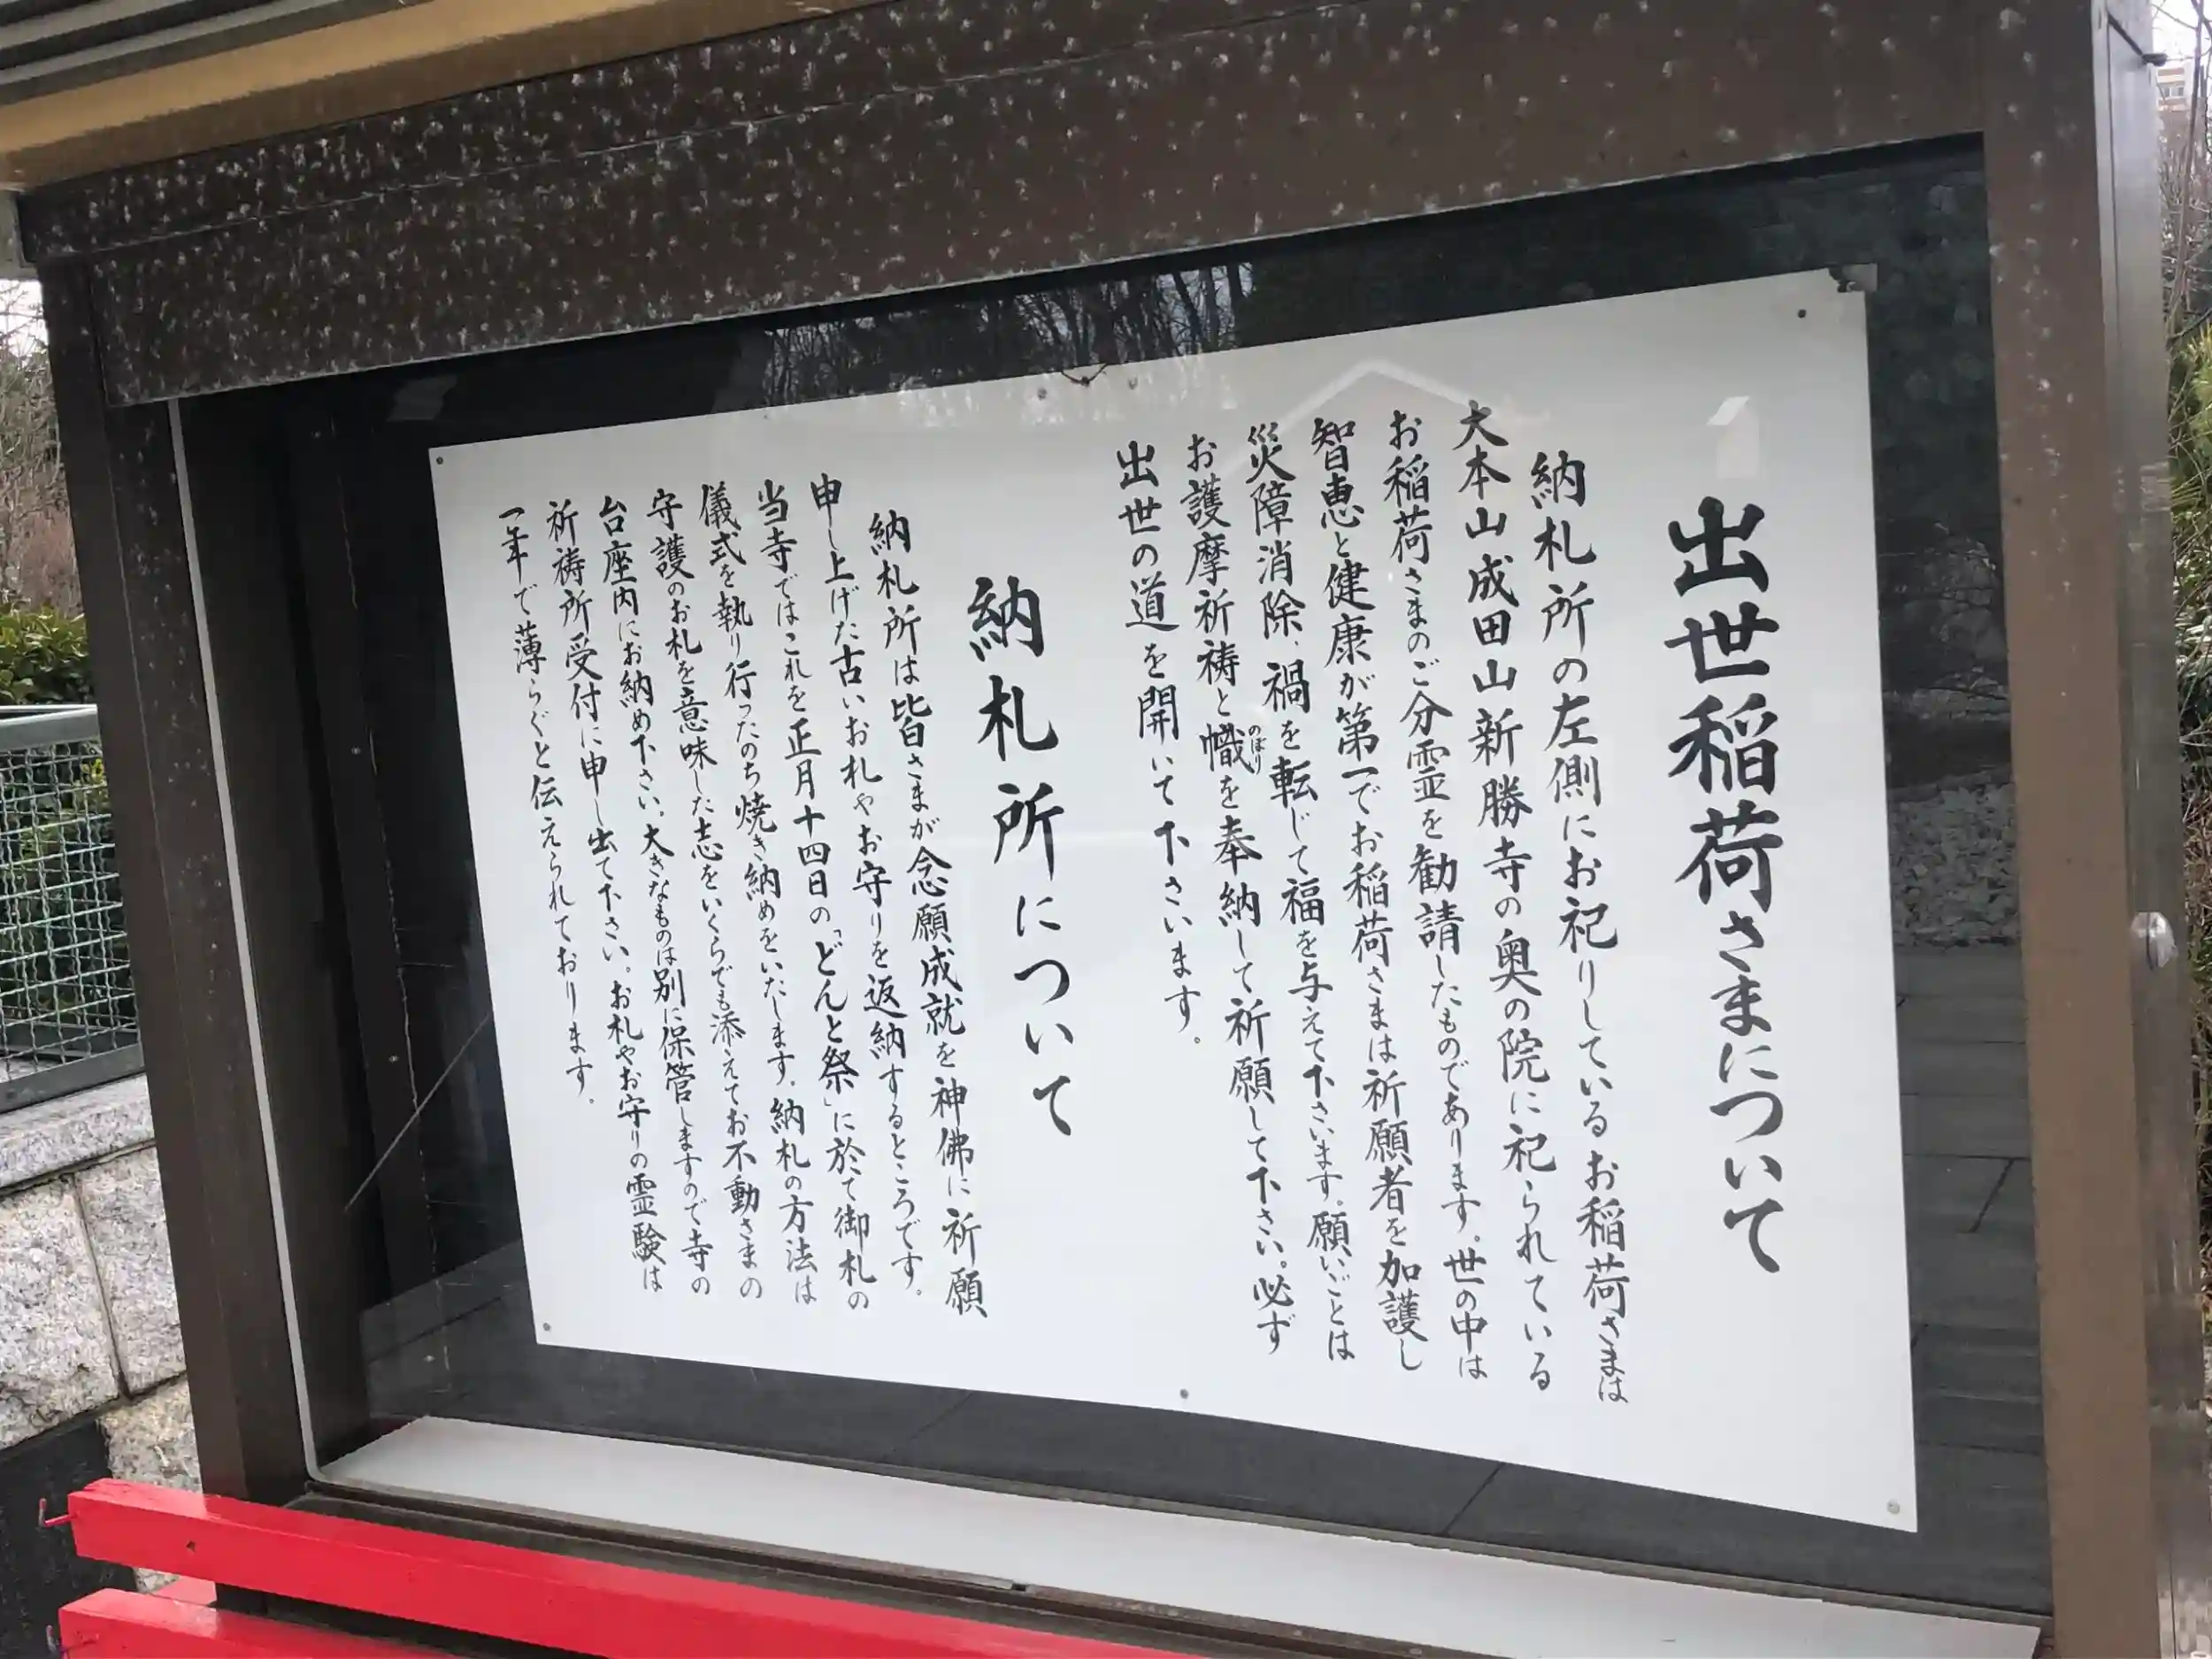 出世稲荷さまについて
納札所の左側にお祀りしているお稲荷さまは
大本山成田山新勝寺の奥の院に祀られている
お稲荷さまのご分霊を勧請したものであります。世の中は
智恵と健康が第一でお稲荷さまは祈願者を加護し
災障消除、禍を転じて福を与えて下さいます。願いごとは
お護摩祈祷と幟のぼりを奉納して祈願して下さい。必ず
出世の道を開いて下さいます。
納札所について
納札所は皆さまが念願成就を神佛に祈願
申し上げた古いお札やお守りを返納するところです。
当寺ではこれを正月十四日の「どんと祭」に於て御札の
儀式を執り行ったのち焼き納めをいたします。納札の方法は
守護のお札を意味した志をいくらでも添えてお不動さまの
台座内にお納め下さい。大きなものは別に保管しますので寺の
祈祷所受付に申し出て下さい。お札やお守りの霊験は
一年で薄らぐと伝えられております。